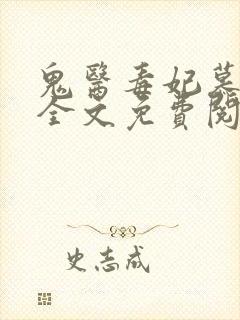 鬼醫毒妃慕
全文免費閱
史志成